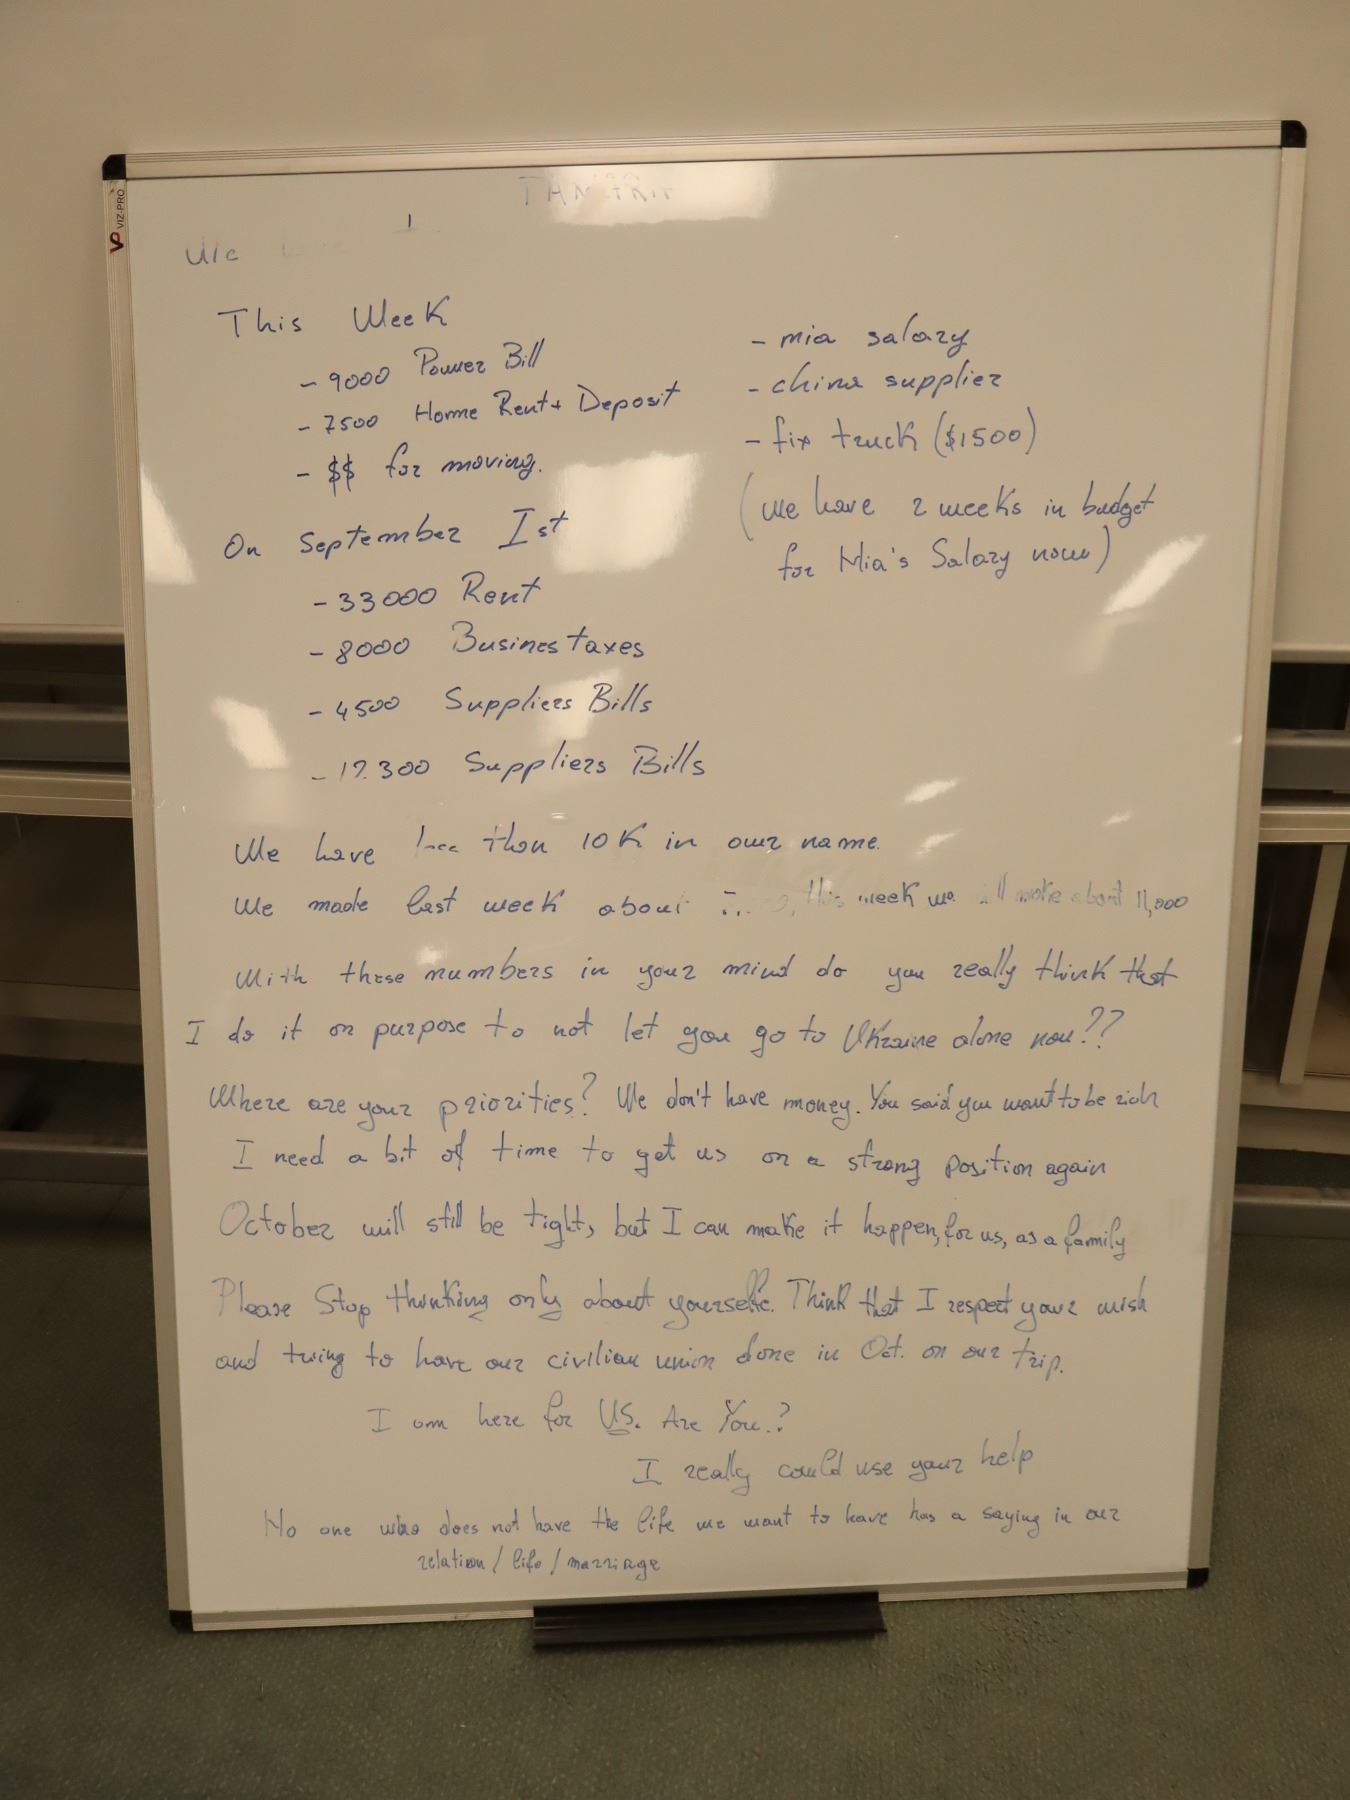 VIZ-PRO
This Week
- 9000 Power Bill
- 7500 Home Rent + Deposit
- $$ for moving.
- mia salary
- china supplier
- fix truck ($1500)
(We have 2 weeks in budget
for Mia's Salary now)
On September 1st
- 33000 Rent
- 8000 Busines taxes
- 4500 Suppliers Bills
- 17.300 Suppliers Bills
We have than 10K in our name.
We made last week about , this week we will make about 11,000
With these numbers in your mind do you really think that
I do it on purpose to not let you go to Ukraine alone now??
Where are your priorities? We don't have money. You said you want to be rich
I need a bit of time to get us on a strong position again
October will still be tight, but I can make it happen, for us, as a family
Please Stop thinking only about yourselfe. Think that I respect your wish
and tring to have our civilian union done in Oct. on our trip.
I am here for US. Are You.?
I really could use your help
No one who does not have the life we want to have has a saying in our
relation / life / marriage